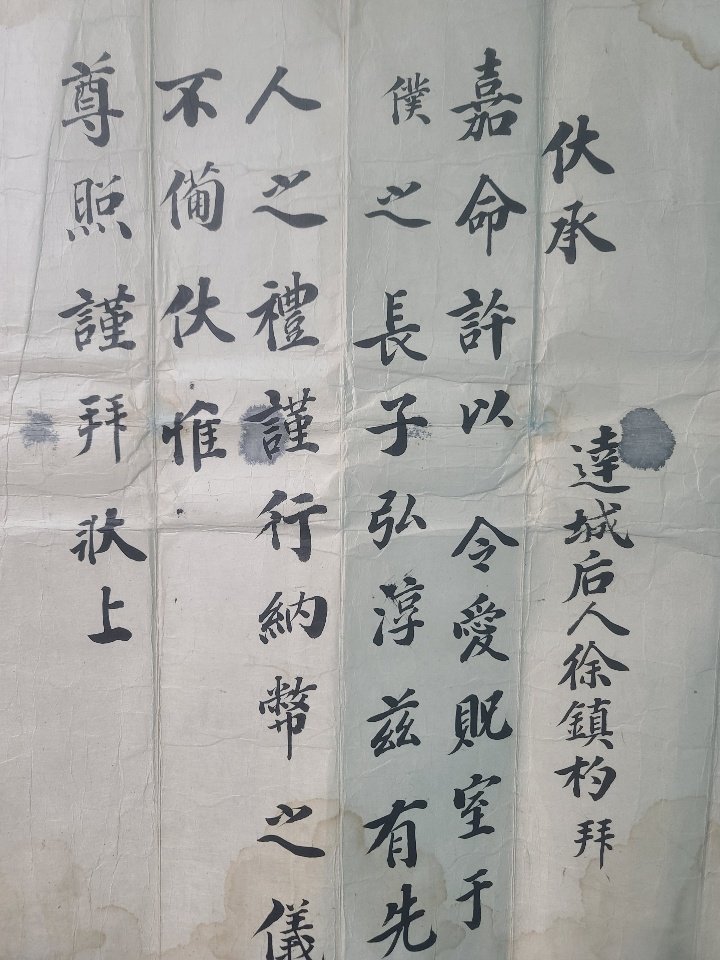 達城后人徐鎮杓 拜
伏承
嘉命許以 令愛貺室于
僕之長子弘淳茲有先
人之禮謹行納幣之儀
不備伏惟
尊照謹拜狀上